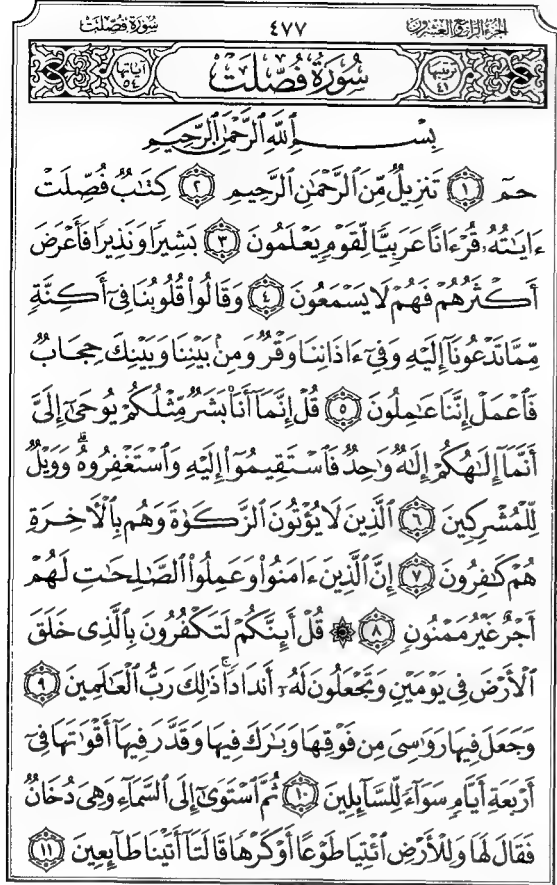 الجزء الرابع والعشرون ٤٧٧ سورة فصلت
ترتيبها ٤١ سُورَةُ فُصِّلَتْ آياتها ٥٤
بِسْمِ ٱللَّهِ ٱلرَّحْمَٰنِ ٱلرَّحِيمِ
حمٓ ١ تَنزِيلٌ مِّنَ ٱلرَّحْمَٰنِ ٱلرَّحِيمِ ٢ كِتَٰبٌ فُصِّلَتْ
ءَايَٰتُهُۥ قُرْءَانًا عَرَبِيًّا لِّقَوْمٍ يَعْلَمُونَ ٣ بَشِيرًا وَنَذِيرًا فَأَعْرَضَ
أَكْثَرُهُمْ فَهُمْ لَا يَسْمَعُونَ ٤ وَقَالُوا۟ قُلُوبُنَا فِىٓ أَكِنَّةٍ
مِّمَّا تَدْعُونَآ إِلَيْهِ وَفِىٓ ءَاذَانِنَا وَقْرٌ وَمِنۢ بَيْنِنَا وَبَيْنِكَ حِجَابٌ
فَٱعْمَلْ إِنَّنَا عَٰمِلُونَ ٥ قُلْ إِنَّمَآ أَنَا۠ بَشَرٌ مِّثْلُكُمْ يُوحَىٰٓ إِلَىَّ
أَنَّمَآ إِلَٰهُكُمْ إِلَٰهٌ وَٰحِدٌ فَٱسْتَقِيمُوٓا۟ إِلَيْهِ وَٱسْتَغْفِرُوهُ ۗ وَوَيْلٌ
لِّلْمُشْرِكِينَ ٦ ٱلَّذِينَ لَا يُؤْتُونَ ٱلزَّكَوٰةَ وَهُم بِٱلْءَاخِرَةِ
هُمْ كَٰفِرُونَ ٧ إِنَّ ٱلَّذِينَ ءَامَنُوا۟ وَعَمِلُوا۟ ٱلصَّٰلِحَٰتِ لَهُمْ
أَجْرٌ غَيْرُ مَمْنُونٍ ٨ ۞ قُلْ أَئِنَّكُمْ لَتَكْفُرُونَ بِٱلَّذِى خَلَقَ
ٱلْأَرْضَ فِى يَوْمَيْنِ وَتَجْعَلُونَ لَهُۥٓ أَندَادًا ۚ ذَٰلِكَ رَبُّ ٱلْعَٰلَمِينَ ٩
وَجَعَلَ فِيهَا رَوَٰسِىَ مِن فَوْقِهَا وَبَٰرَكَ فِيهَا وَقَدَّرَ فِيهَآ أَقْوَٰتَهَا فِىٓ
أَرْبَعَةِ أَيَّامٍ سَوَآءً لِّلسَّآئِلِينَ ١٠ ثُمَّ ٱسْتَوَىٰٓ إِلَى ٱلسَّمَآءِ وَهِىَ دُخَانٌ
فَقَالَ لَهَا وَلِلْأَرْضِ ٱئْتِيَا طَوْعًا أَوْ كَرْهًا قَالَتَآ أَتَيْنَا طَآئِعِينَ ١١